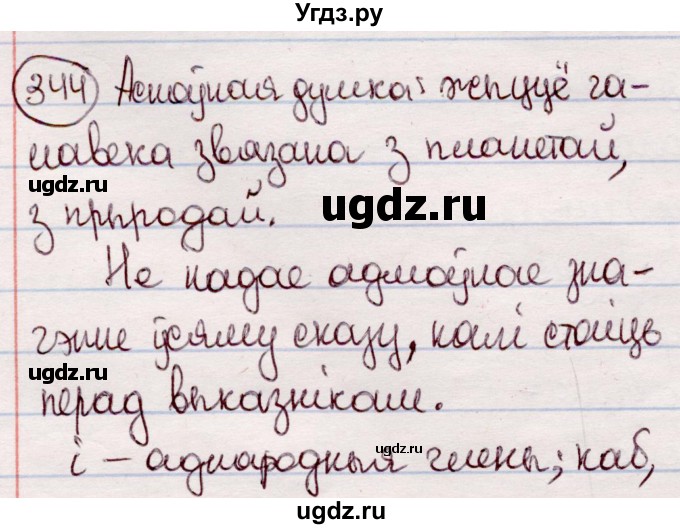 Угдз.ру
344 Асноўная думка: жыццё ча-
лавека звязана з планетай,
ugdz.ru
з прыродай.
ugdz.ru
Не надае адмоўнае зна-
чэнне ўсяму сказу, калі стаіць
ugdz.ru
перад выказнікам.
ugdz.ru
і – аднародныя члены; каб,
ugdz.ru